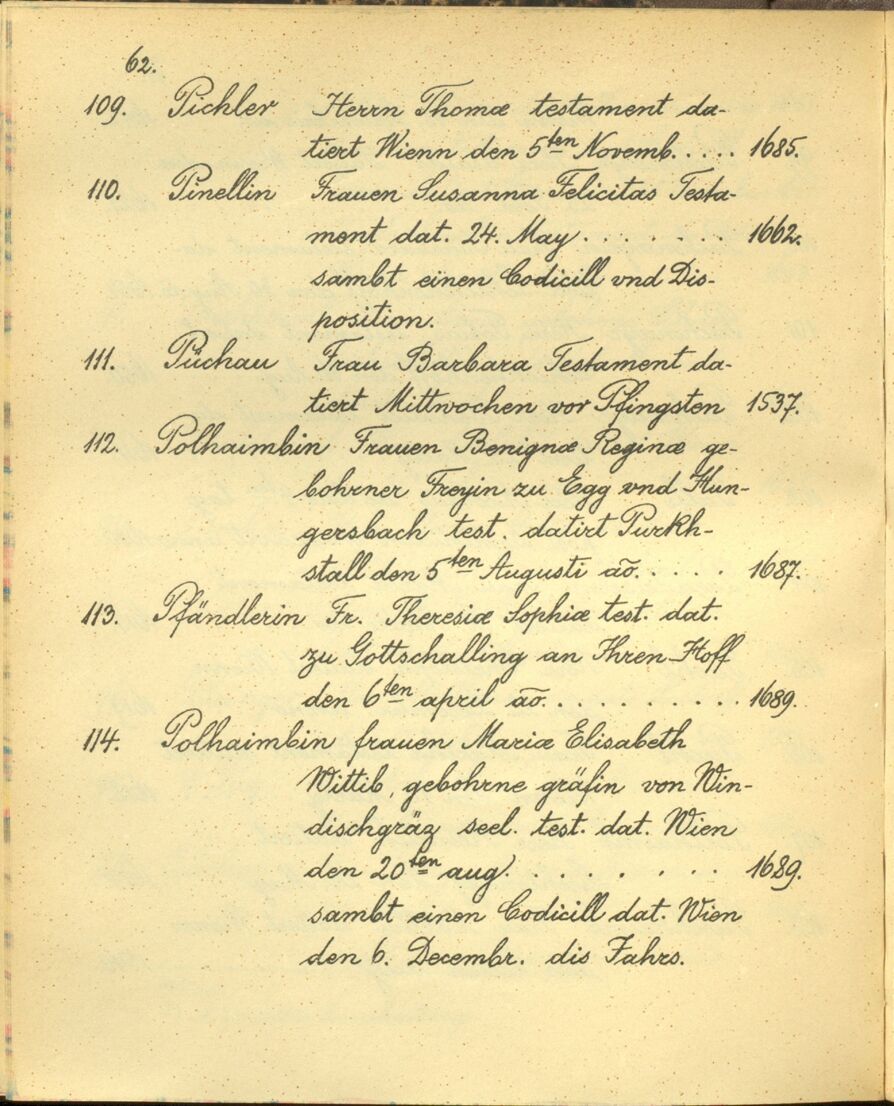 62.
109. Pichler Herrn Thomæ testament da-
tiert Wienn den 5ten Novemb. .... 1685.
110. Pinellin Frauen Susanna Felicitas Testa-
ment dat. 24. May . . . . . . . 1662.
sambt einen Codicill vnd Dis-
position.
111. Püchau Frau Barbara Testament da-
tiert Mittwochen vor Pfingsten 1537.
112. Polhaimbin Frauen Benignæ Reginæ ge-
bohrner Freyin zu Egg vnd Hun-
gersbach test. datirt Purkh-
stall den 5ten Augusti ao. . . . . 1687.
113. Pfändlerin Fr. Theresiæ Sophiæ test. dat.
zu Gottschalling an Ihren Hoff
den 6ten april ao. . . . . . . . . . 1689.
114. Polhaimbin frauen Mariæ Elisabeth
Wittib, gebohrne gräfin von Win-
dischgräz seel. test. dat. Wien
den 20ten aug. . . . . . . . 1689.
sambt einen Codicill dat. Wien
den 6. Decembr. dis Jahrs.